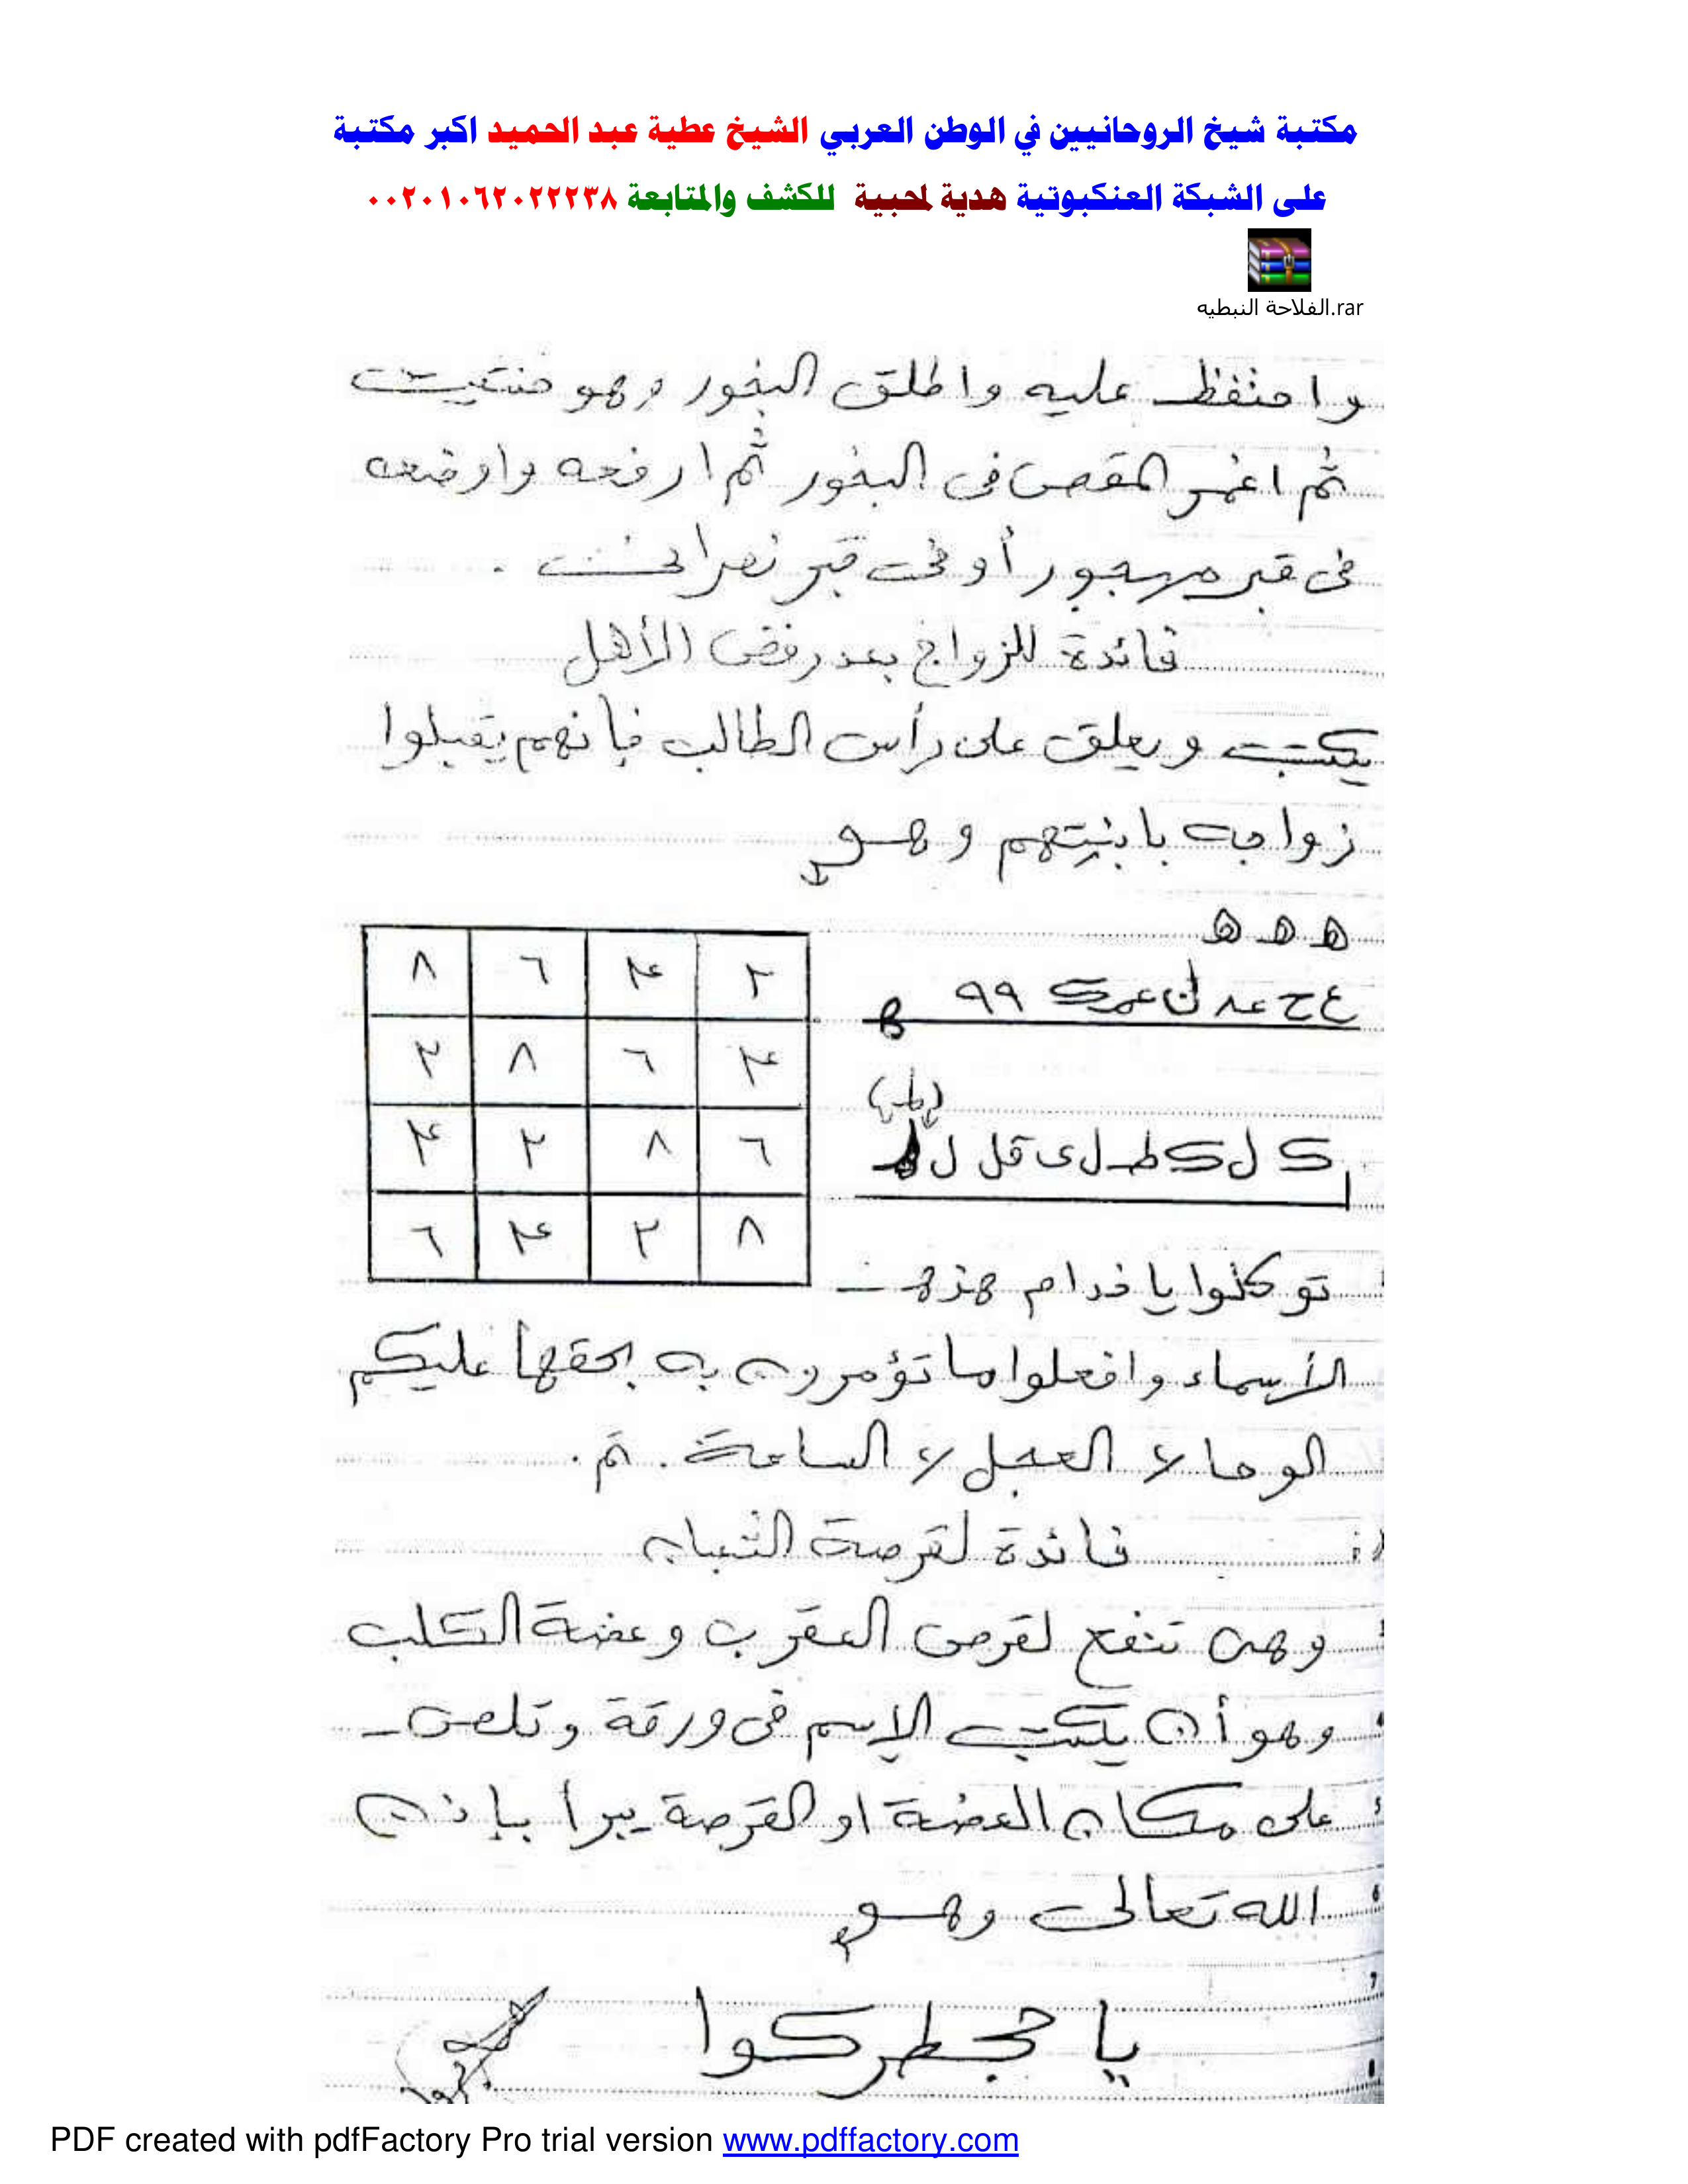 مكتبة شيخ الروحانيين في الوطن العربي الشيخ عطية عبد الحميد اكبر مكتبة
على الشبكة العنكبوتية هدية لمحبية للكشف والمتابعة ٠٠٢٠١٠٦٢٠٢٢٢٣٨
الفلاحة النبطيه.rar
واحتفظ عليه واطلق البخور وهو
ثم اغمر المقص فى البخور ثم ارفعه واوضعه
فى قبر مهجور أو فى قبر نصرانى
فائدة للزواج بعد رفض الأهل
يكتب ويعلق على رأس الطالب فإنهم يقبلوا
زواجه بابنتهم وهو
ه ه ه
٢ ٤ ٦ ٨
٤ ٦ ٨ ٢
٦ ٨ ٢ ٤
٨ ٢ ٤ ٦
توكلوا يا خدام هذه
الأسماء وافعلوا ما تؤمرون به بحقها عليكم
الوحا ٢ العجل ٢ الساعة . تم .
فائدة لقرصة الثعبان
وهى تنفع لقرص العقرب وعضة الكلب
وهو أن يكتب الإسم فى ورقة وتلصق
على مكان العضة او القرصة يبرأ بإذن
الله تعالى وهو
يا
PDF created with pdfFactory Pro trial version www.pdffactory.com